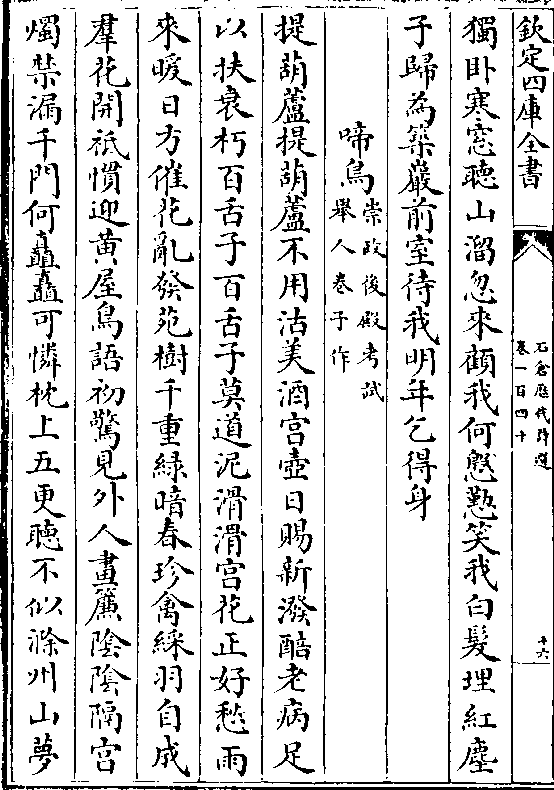 欽定四庫全書
石倉歷代詩選
卷一百四十
十六
獨卧寒窓聴山溜忽来顧我何慇懃笑我白髮埋紅塵
子歸為築巖前室待我明年乞得身
啼鳥
崇政後殿考試
舉人卷子作
提葫蘆提葫蘆不用沽美酒宫壺日賜新潑醅老病足
以扶衰朽百舌子百舌子莫道泥滑滑宫花正好愁雨
來暖日方催花亂發苑樹千重緑暗春珍禽綵羽自成
羣花開祗慣迎黄屋鳥語初驚見外人晝簾陰陰隔宫
燭禁漏千門何矗矗可憐枕上五更聴不似滁州山夢